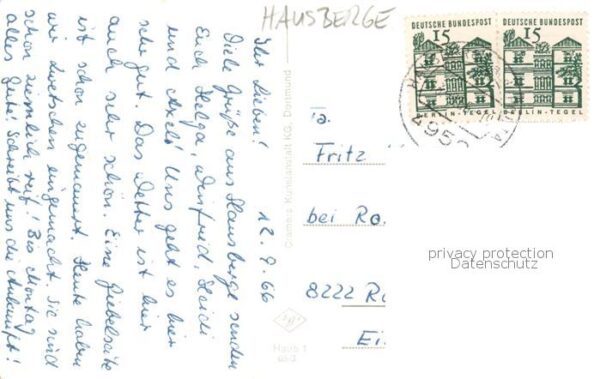 HAUSBERGE
12.9.66
Ihr Lieben!
Viele Grüße aus Hausberge senden
Euch Helga, Winfried, Heidi
und Axel! Uns geht es hier
sehr gut. Das Wetter ist hier
auch sehr schön. Eine Giebelseite
ist schon zugemauert. Heute haben
wir Zwetschen eingemacht. Sie sind
schon ziemlich reif! Bis Montag
alles Gute! Schreibt uns die Ankunft!
Cramers Kunstanstalt KG, Dortmund
DEUTSCHE BUNDESPOST
15
BERLIN-TEGEL
DEUTSCHE BUNDESPOST
15
BERLIN-TEGEL
495
Fa.
Fritz
bei Ro
8222 Ru
Ei
privacy protection
Datenschutz